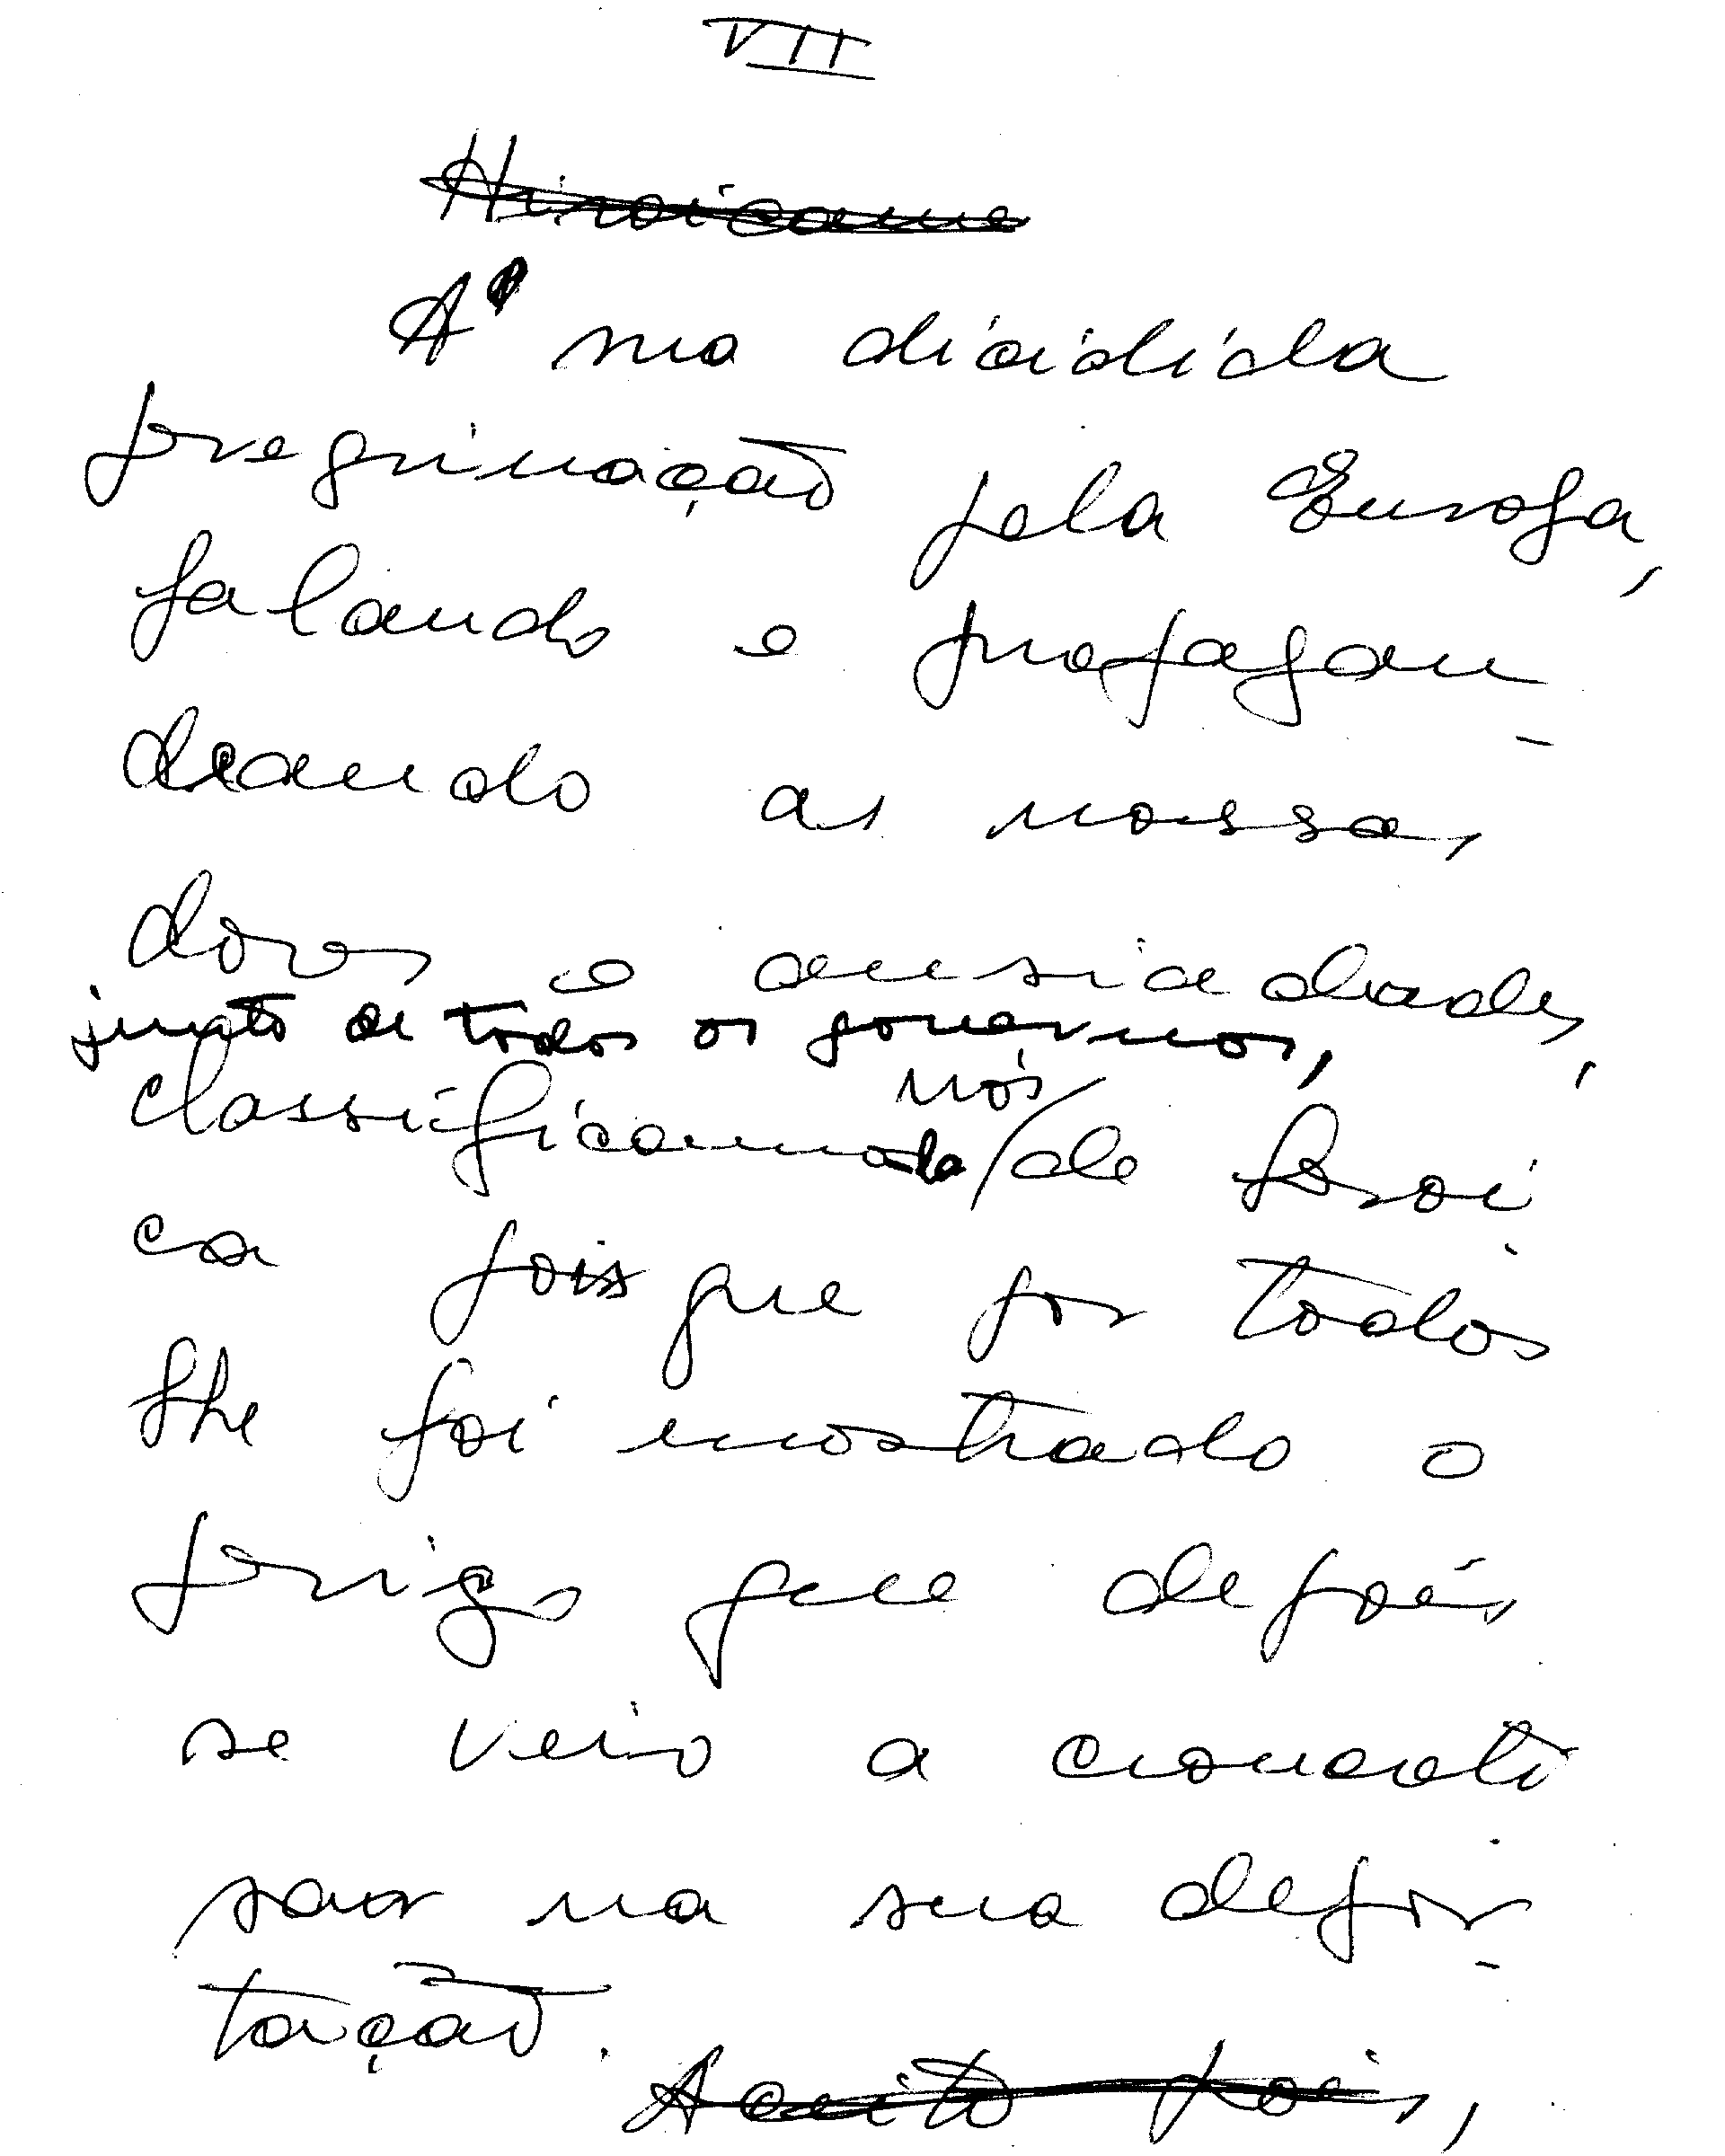 VII
Heroicame
A sua decidida
pregrinação pela Europa,
falando e propagan-
deando as nossas
dores e ansiedades,
junto de todos os governos,
nós
classificamo-la / de heroi-
ca pois que por todos
lhe foi mostrado o
perigo que depois
se veio a concreti-
sar na sua depor-
tação. Aceito pois,